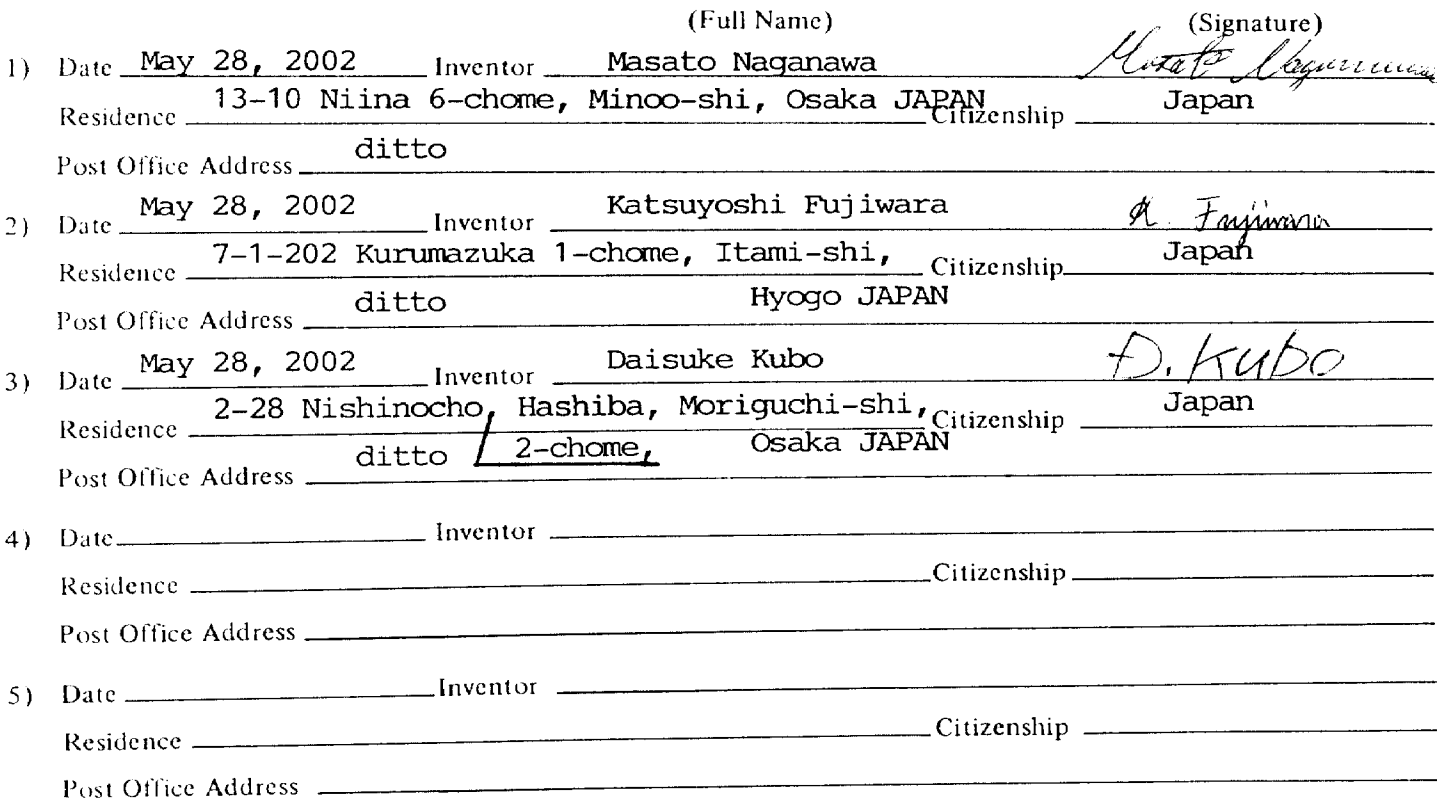 (Full Name) (Signature)
1) Date May 28, 2002 Inventor Masato Naganawa Masato Naganawa
Residence 13-10 Niina 6-chome, Minoo-shi, Osaka JAPAN Citizenship Japan
Post Office Address ditto
2) Date May 28, 2002 Inventor Katsuyoshi Fujiwara K. Fujiwara
Residence 7-1-202 Kurumazuka 1-chome, Itami-shi, Citizenship Japan
Post Office Address ditto Hyogo JAPAN
3) Date May 28, 2002 Inventor Daisuke Kubo D. Kubo
Residence 2-28 Nishinocho, Hashiba, Moriguchi-shi, Citizenship Japan
Post Office Address ditto 2-chome, Osaka JAPAN
4) Date Inventor
Residence Citizenship
Post Office Address
5) Date Inventor
Residence Citizenship
Post Office Address